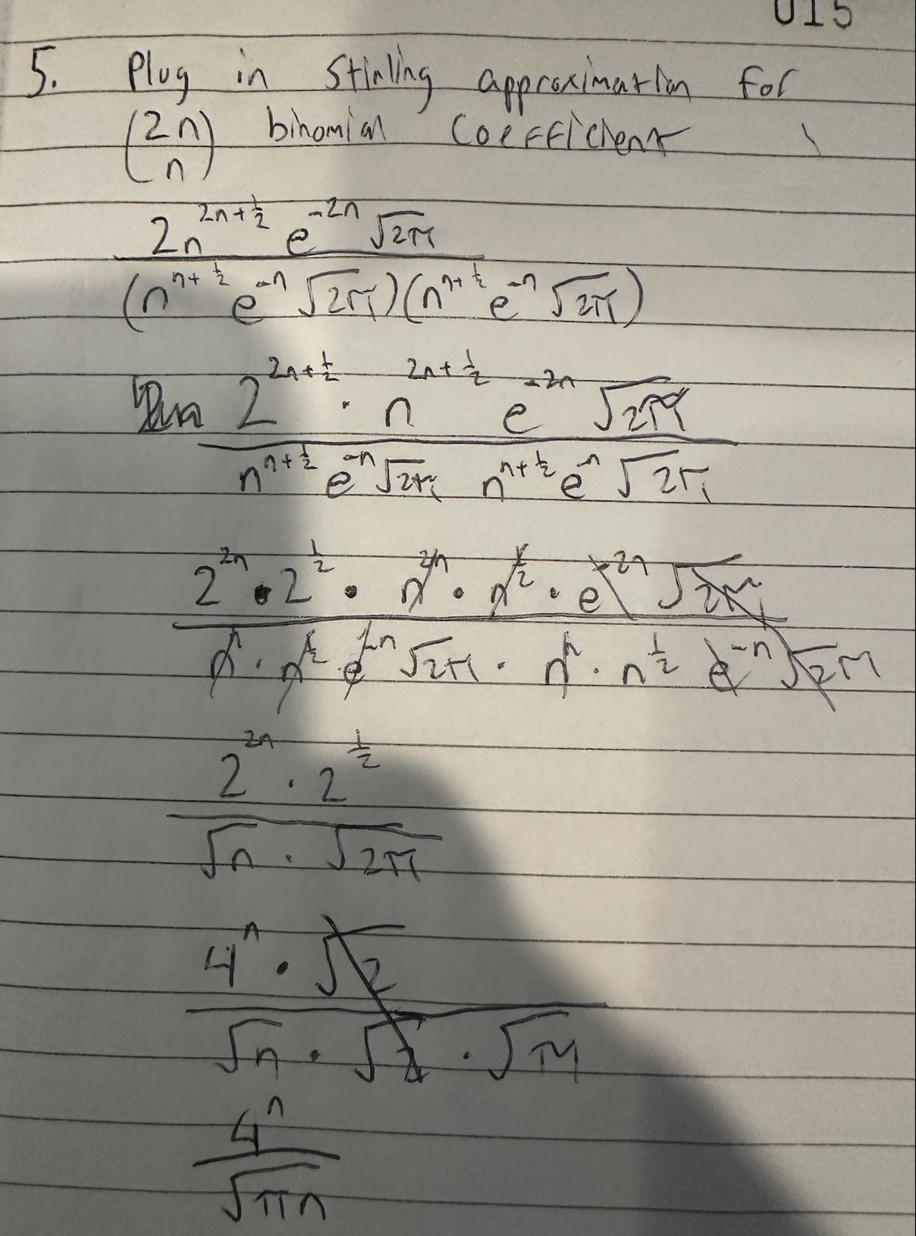 015
5. Plug in Stirling approximation for
(2n n) binomial coefficient
2n^{2n+1/2} e^{-2n} √2π
(n^{n+1/2} e^{-n} √2π)(n^{n+1/2} e^{-n} √2π)
2^{2n+1/2} · n^{2n+1/2} e^{-2n} √2π
n^{n+1/2} e^{-n} √2π n^{n+1/2} e^{-n} √2π
2^{2n} · 2^{1/2} · n^{2n} · n^{1/2} · e^{-2n} √2π
n^n · n^{1/2} · e^{-n} √2π · n^n · n^{1/2} e^{-n} √2π
2^{2n} · 2^{1/2}
√n · √2π
4^n · √2
√n · √2 · √π
4^n
√πn